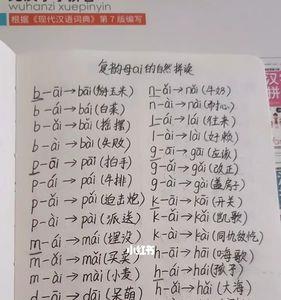 wuhanzi xuepinyin
根据《现代汉语词典》第7版编写
复韵母ai的自然拼读
b-āi→bāi(掰玉米)
b-ái→bái(白菜)
b-ǎi→bǎi(摇摆)
b-ài→bài(失败)
p-āi→pāi(拍手)
p-ái→pái(牛排)
p-ǎi→pǎi(迫击炮)
p-ài→pài(派送)
m-ái→mái(埋没)
m-ǎi→mǎi(买卖)
m-ài→mài(小麦)
d-āi→dāi(呆萌)
n-ǎi→nǎi(牛奶)
n-ài→nài(耐心)
l-ái→lái(往来)
l-ài→lài(好赖)
g-āi→gāi(应该)
g-ǎi→gǎi(改正)
g-ài→gài(盖房子)
k-āi→kāi(开关)
k-ǎi→kǎi(凯歌)
k-ài→kài(同仇敌忾)
h-āi→hāi(嗨歌)
h-ái→hái(孩子)
h-ǎi→hǎi(大海)
小红书
汉
拼